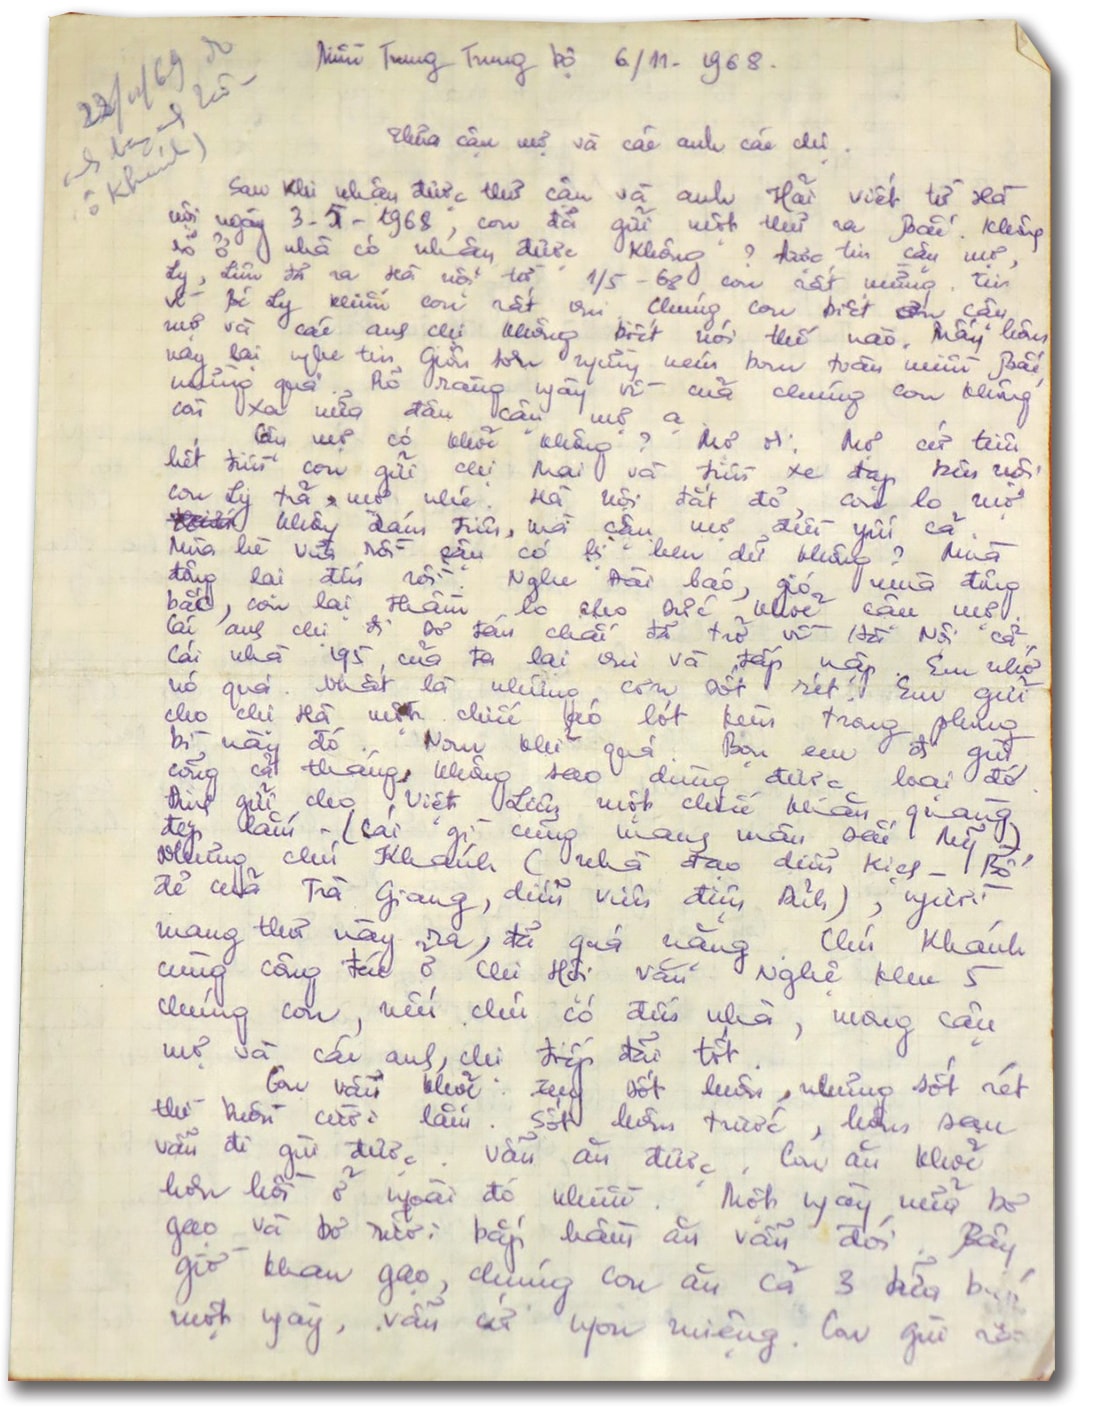 22/11/69 do
anh
ô Khánh)
Miền Trung Trung bộ 6/11-1968.
Thưa cậu mợ và các anh các chị.
Sau khi nhận được thư cậu và anh Hải viết từ Hà
nội ngày 3-5-1968, con đã gửi một thư ra Bắc. Không
rõ ở nhà có nhận được không? Được tin cậu mợ,
Ly, Liên đã ra Hà nội từ 1/5-68 con rất mừng. Tin
về Bé Ly khiến con rất vui. Chúng con biết ơn cậu
mợ và các anh chị không biết nói thế nào. Mấy hôm
nay lại nghe tin Giôn sơn ngừng ném bom toàn miền Bắc,
mừng quá. Rõ ràng ngày về của chúng con không
còn xa nữa đâu cậu mợ ạ.
Cậu mợ có khoẻ không? Mợ ơi, Mợ cứ tiêu
hết tiền con gửi chị Mai và tiền xe đạp bên nội
con Ly trả mợ nhé. Hà Nội đắt đỏ, con lo mợ
không dám tiêu, mà cậu mợ đều yếu cả.
Mùa hè vừa rồi cậu có bị hen dữ không? Mùa
đông lại đến rồi. Nghe Đài báo, gió mùa đông
bắc, con lại thầm lo cho sức khoẻ cậu mợ.
Các anh chị đi sơ tán chắc đã trở về Hà Nội cả,
Cái nhà 195 của ta lại vui và tấp nập. Em nhớ
nó quá. Nhất là những cơn sốt rét. Em gửi
cho chị Hà một chiếc áo lót kèm trong phong
bì này đó. Nom khiếp quá. Bọn em đi gùi
cõng cả tháng, không sao dùng được loại đó.
Em gửi cho Việt Liên một chiếc khăn quàng
đẹp lắm - (cái gì cũng mang màu sắc Mỹ)
Nhưng chú Khánh (nhà đạo diễn kịch - Bố
đẻ của Trà Giang, diễn viên điện ảnh), người
mang thư này ra, đã quá nặng. Chú Khánh
cùng công tác ở Chi Hội Văn Nghệ khu 5
chúng con, nếu chú có đến nhà, mong cậu
mợ và các anh, chị tiếp đãi tốt.
Con vẫn khoẻ. Tuy sốt luôn, nhưng sốt rét
thì buồn cười lắm. Sốt hôm trước, hôm sau
vẫn đi gùi được. Vẫn ăn được. Con ăn khoẻ
hơn hồi ở ngoài đó nhiều. Một ngày nửa bò
gạo và bò rưỡi bắp hầm ăn vẫn đói. Bây
giờ khan gạo, chúng con ăn cả 3 bữa bắp
một ngày, vẫn cứ ngon miệng. Con gùi